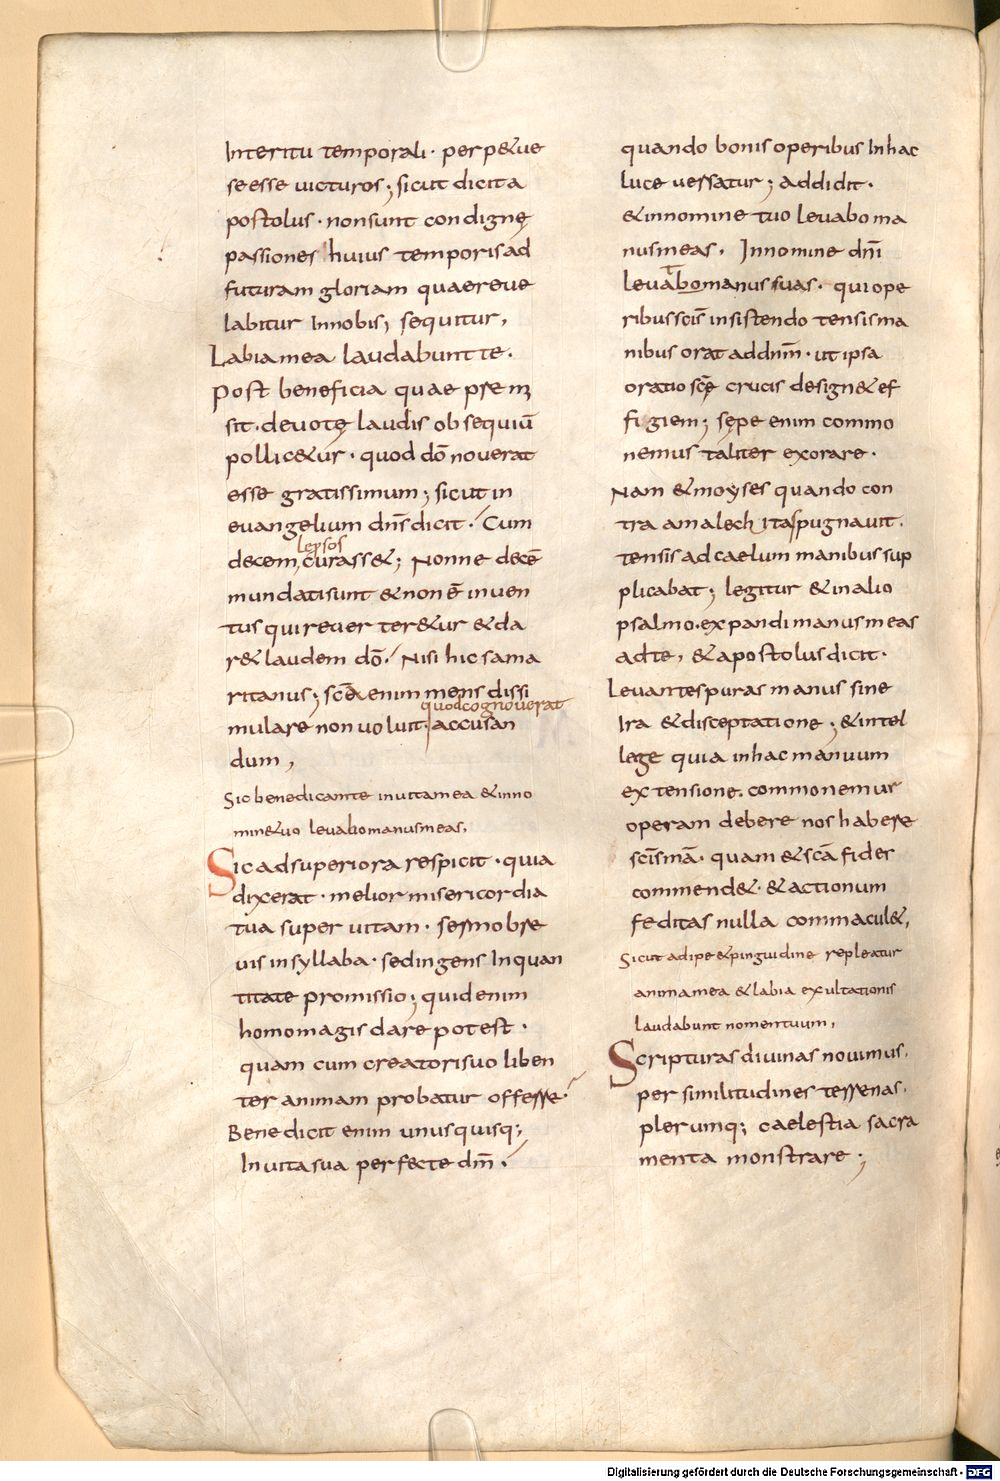 Interitu temporali · perp&ue
se esse uicturos ; sicut dicit a
postolus · non sunt condignę
passiones huius temporis ad
futuram gloriam quae reue
labitur In nobis ; sequitur,
Labia mea laudabunt te ·
Post beneficia quae prem
sit · deuotę laudis obsequiū
pollic&ur · quod dō nouerat
esse gratissimum ; sicut in
euangelium dn̄s dicit · Cum
lepsos
decem, curass& ; Nonne decē
mundati sunt & non ē inuen
tus qui reuerter&ur & da
r& laudem dō · Nisi hic sama
ritanus ; scā enim mens dissi
quod cognouerat
mulare non uoluit · accusan
dum ,
Sic benedicam te in uita mea & in no
min& uo leuabo manus meas,
Sic ad superiora respicit · quia
dixerat · melior misericordia
tua super uitam · sermo bre
uis in syllaba · sed ingens In quan
titate promissio ; quid enim
homo magis dare potest ·
quam cum creatori suo liben
ter animam probatur offerre ·
Benedicit enim unus quisq;
In uita sua perfecte dn̄m ·
quando bonis operibus In hac
luce uersatur ; addidit ·
& in nomine tuo leuabo ma
nus meas · In nomine dn̄i
t
leuabo manus suas · qui ope
ribus sc̄is insistendo tensis ma
nibus orat ad dn̄m · ut ipsa
oratio sc̄ę crucis design& ef
figiem ; sępe enim commo
nemus taliter exorare ·
Nam & moyses quando con
tra amalech ita pugnauit ·
tensis ad caelum manibus sup
plicabat ; legitur & in alio
psalmo · expandi manus meas
ad te , & apostolus dicit ·
Leuantes puras manus sine
Ira & disceptatione ; & intel
lege quia in hac manuum
extensione · commonemur
operam debere nos habere
sc̄issmā · quam & scā fides
commend& · & actionum
feditas nulla commacul&,
Sicut adipe & pinguidine repleatur
anima mea & labia exultationis
laudabunt nomen tuum ,
Scripturas diuinas nouimus ·
per similitudines terrenas ·
plerumq; caelestia sacra
menta monstrare ;
Digitalisierung gefördert durch die Deutsche Forschungsgemeinschaft - DFG